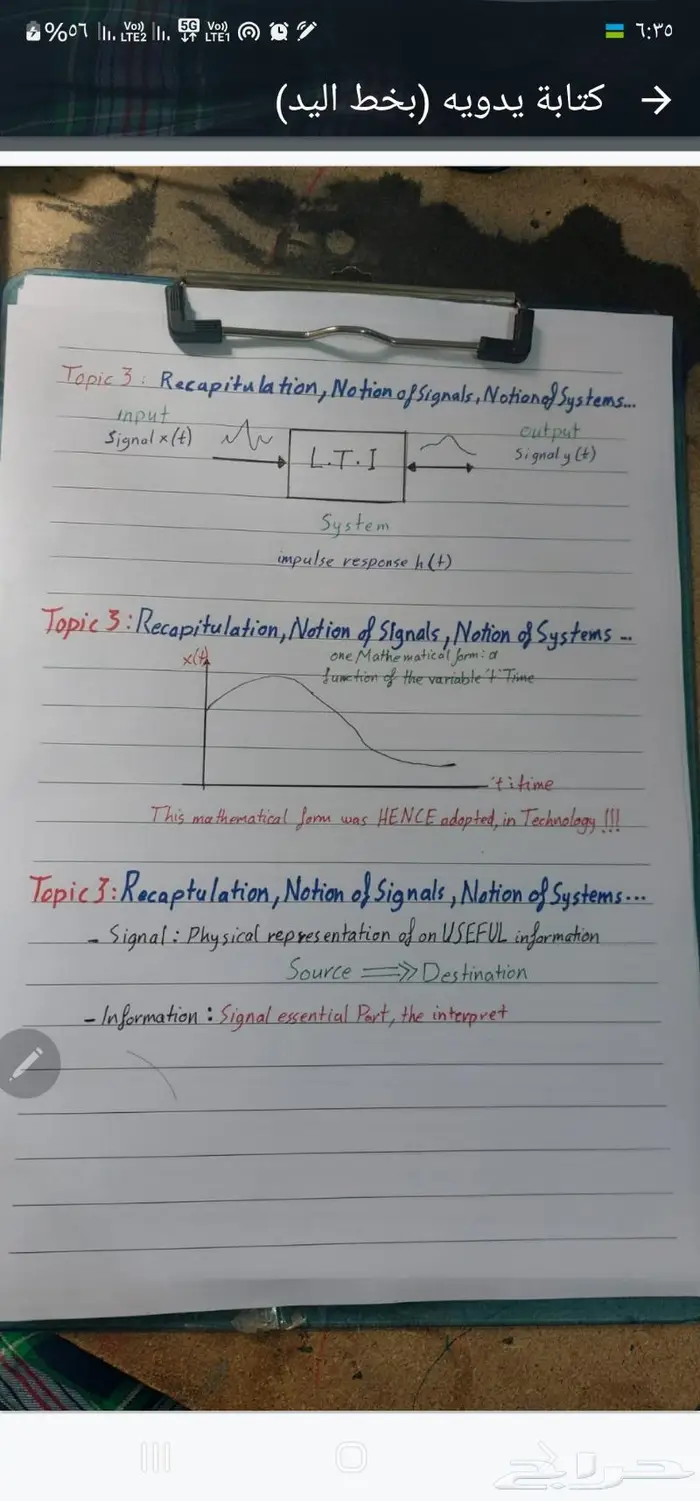 %٥٦ Vo)) LTE2 5G Vo)) LTE1 ٦:٣٥
كتابة يدويه (بخط اليد)
Topic 3: Recapitulation, Notion of Signals, Notion of Systems...
input
Signal x(t)
L.T.I
output
Signal y(t)
System
impulse response h(t)
Topic 3: Recapitulation, Notion of Signals, Notion of Systems...
x(t)
one Mathematical form: a
function of the variable 't' Time
't': time
This mathematical form was HENCE adopted, in Technology!!!
Topic 3: Recaptulation, Notion of Signals, Notion of Systems...
- Signal: Physical representation of on USEFUL information
Source ⟹ Destination
- Information: Signal essential Part, the interpret
حراج